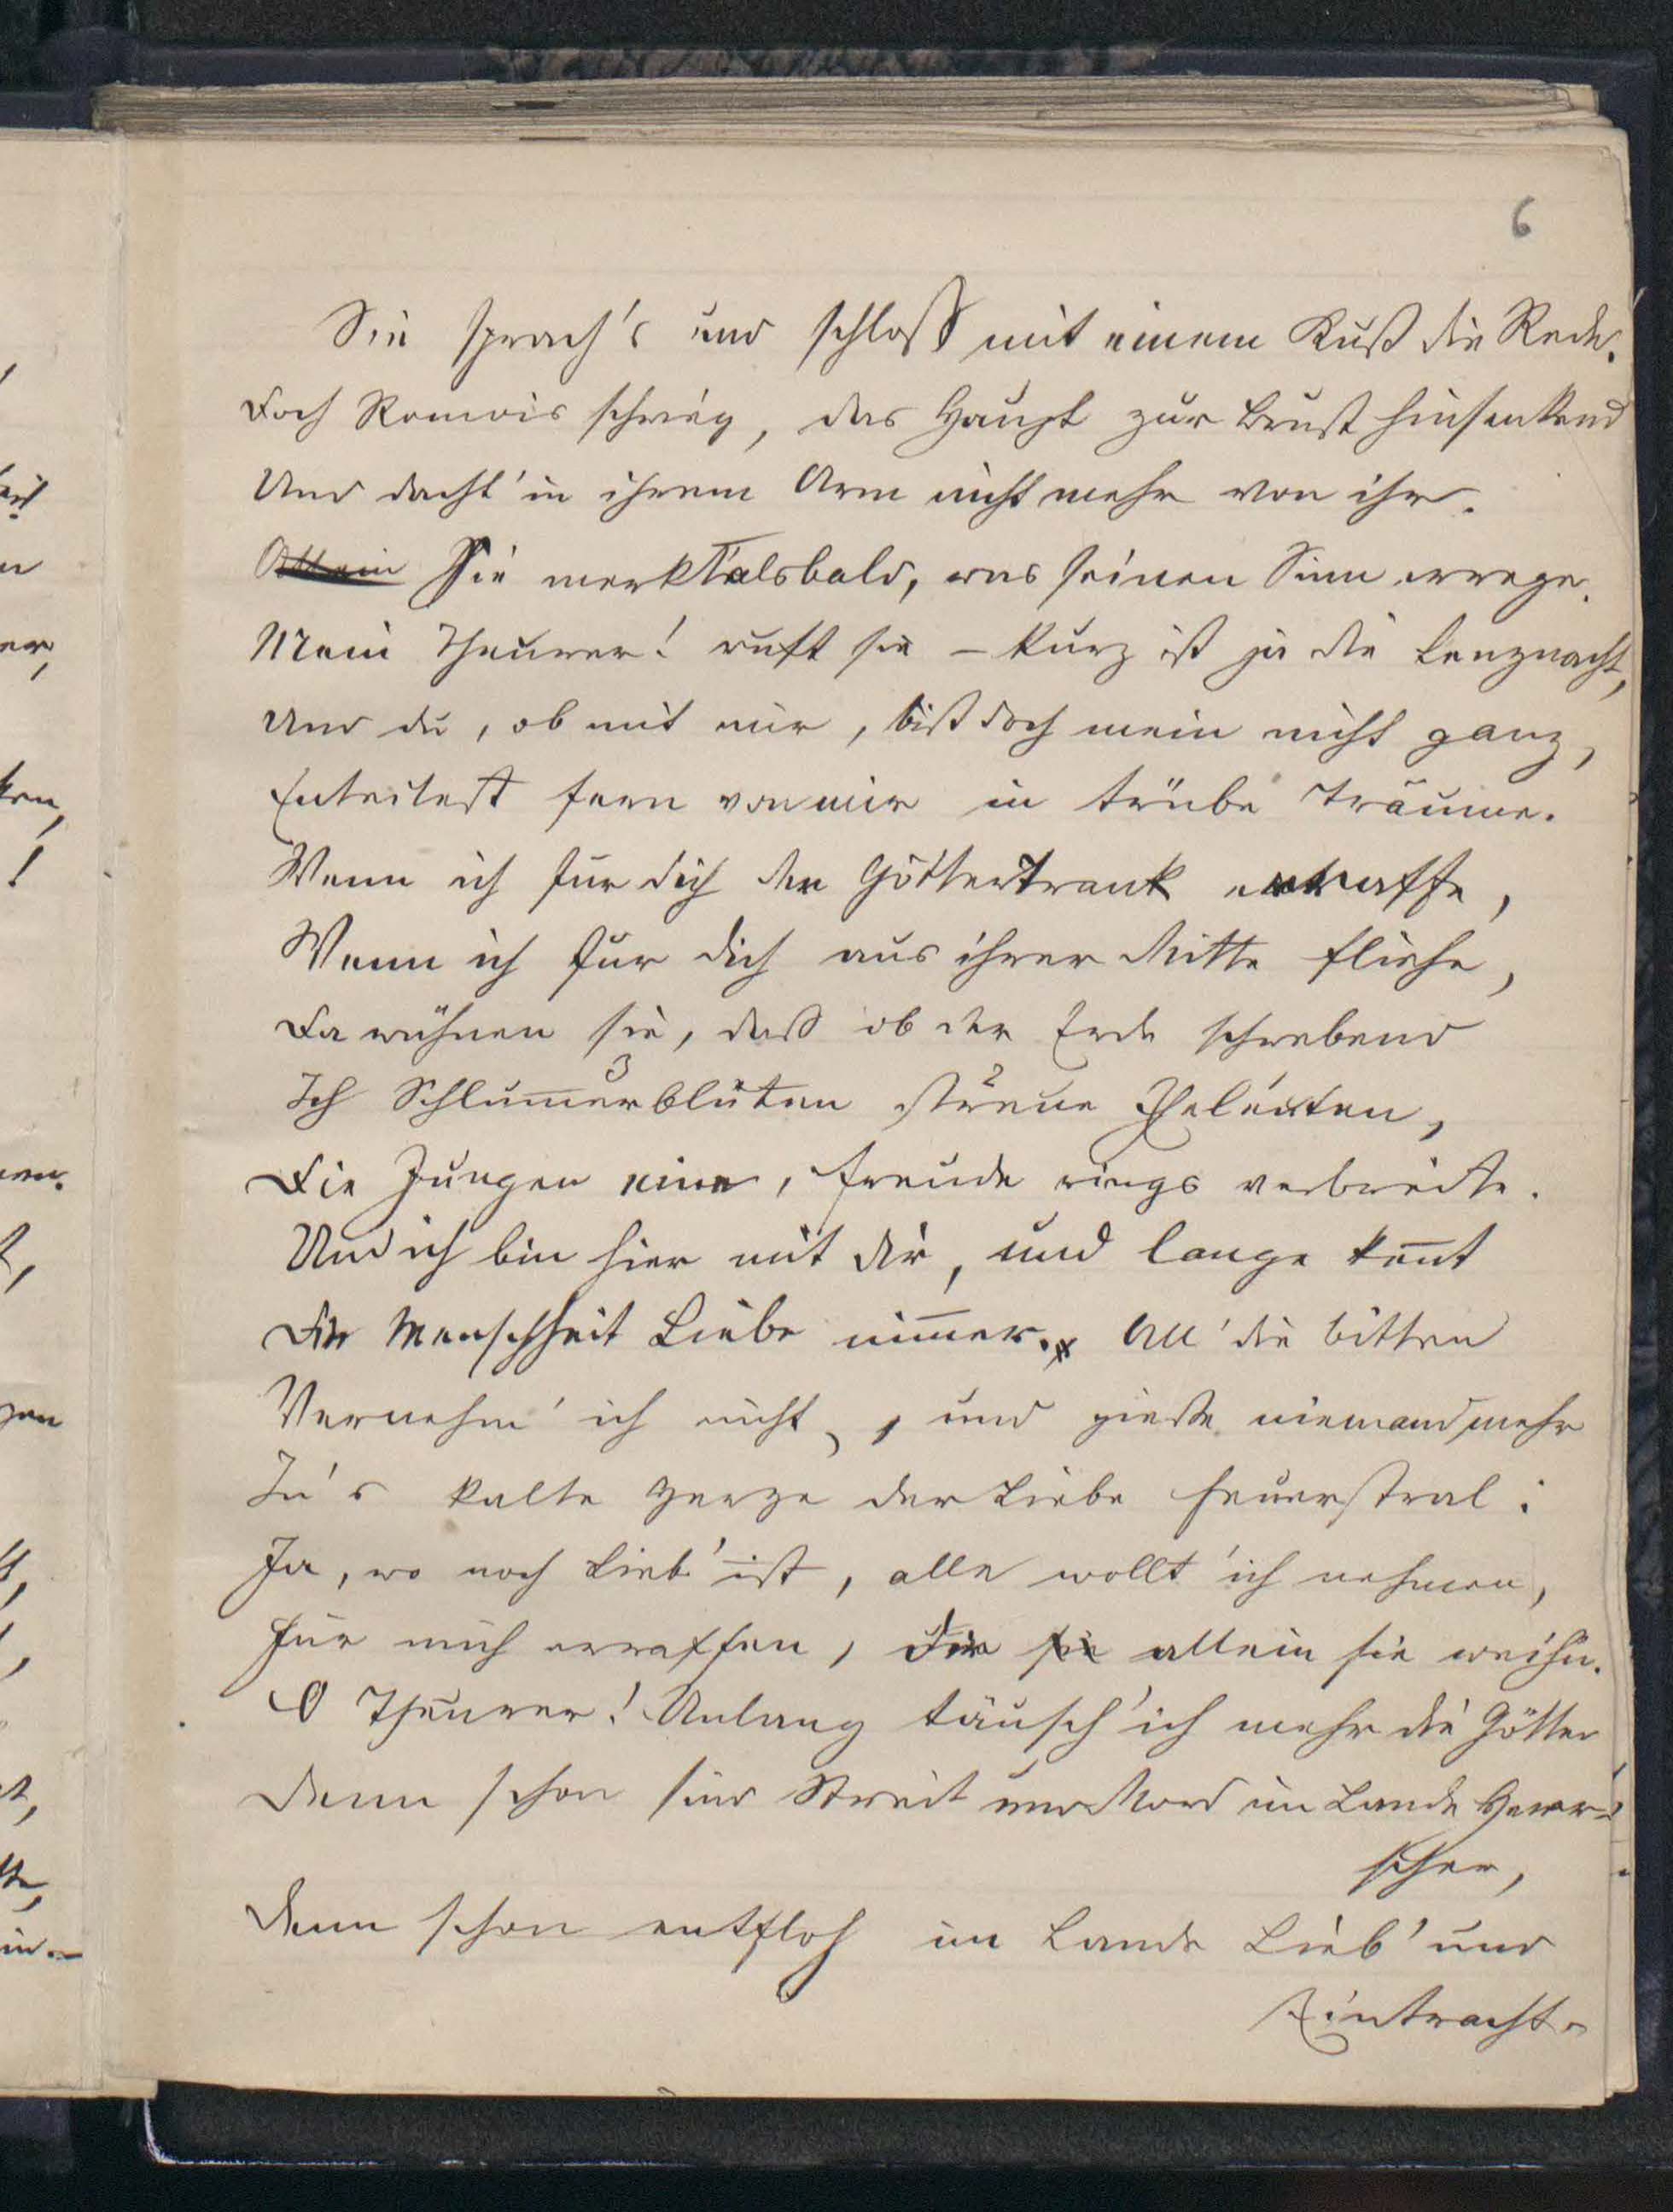 6
Sie sprach's und schloß mit einem Kuß die Rede.
Doch Romois schwieg, das Haupt zur Brust hinsenkend
Und dacht' in ihrem Arm nicht mehr von ihr.
Allein Sie merkt alsbald, was seinen Sinn errege.
Mein Theurer! ruft sie – kurz ist ja die Lenznacht,
Und du, ob mit mir, bist doch mein nicht ganz,
Enteilest fern von mir in trübe Träume.
Wenn ich für dich den Göttertrank erraffe,
Wenn ich für dich aus ihrer Mitte fliehe,
Da wähnen sie, daß ob der Erde schwebend
Ich Schlum̅erblüten 3 streue 2
Die Jungen eine, Freude rings verbreite.
Und ich bin hier mit dir, und lange ken̅t
Die Menschheit Liebe nim̅er. All' die Bitten
Vernehm' ich nicht, und gieße niemand mehr
In's kalte Herze der Liebe Feuerstral:
Ja, wo noch Lieb' ist, alle wollt' ich nehmen,
Für mich erraffen, Dir sie allein sie weih'n.
O Theurer! Unlang täusch' ich mehr die Götter
Denn schon sind Streit und Mord im Lande Herr-
scher,
Denn schon entfloh im Lande Lieb' und
Eintracht.